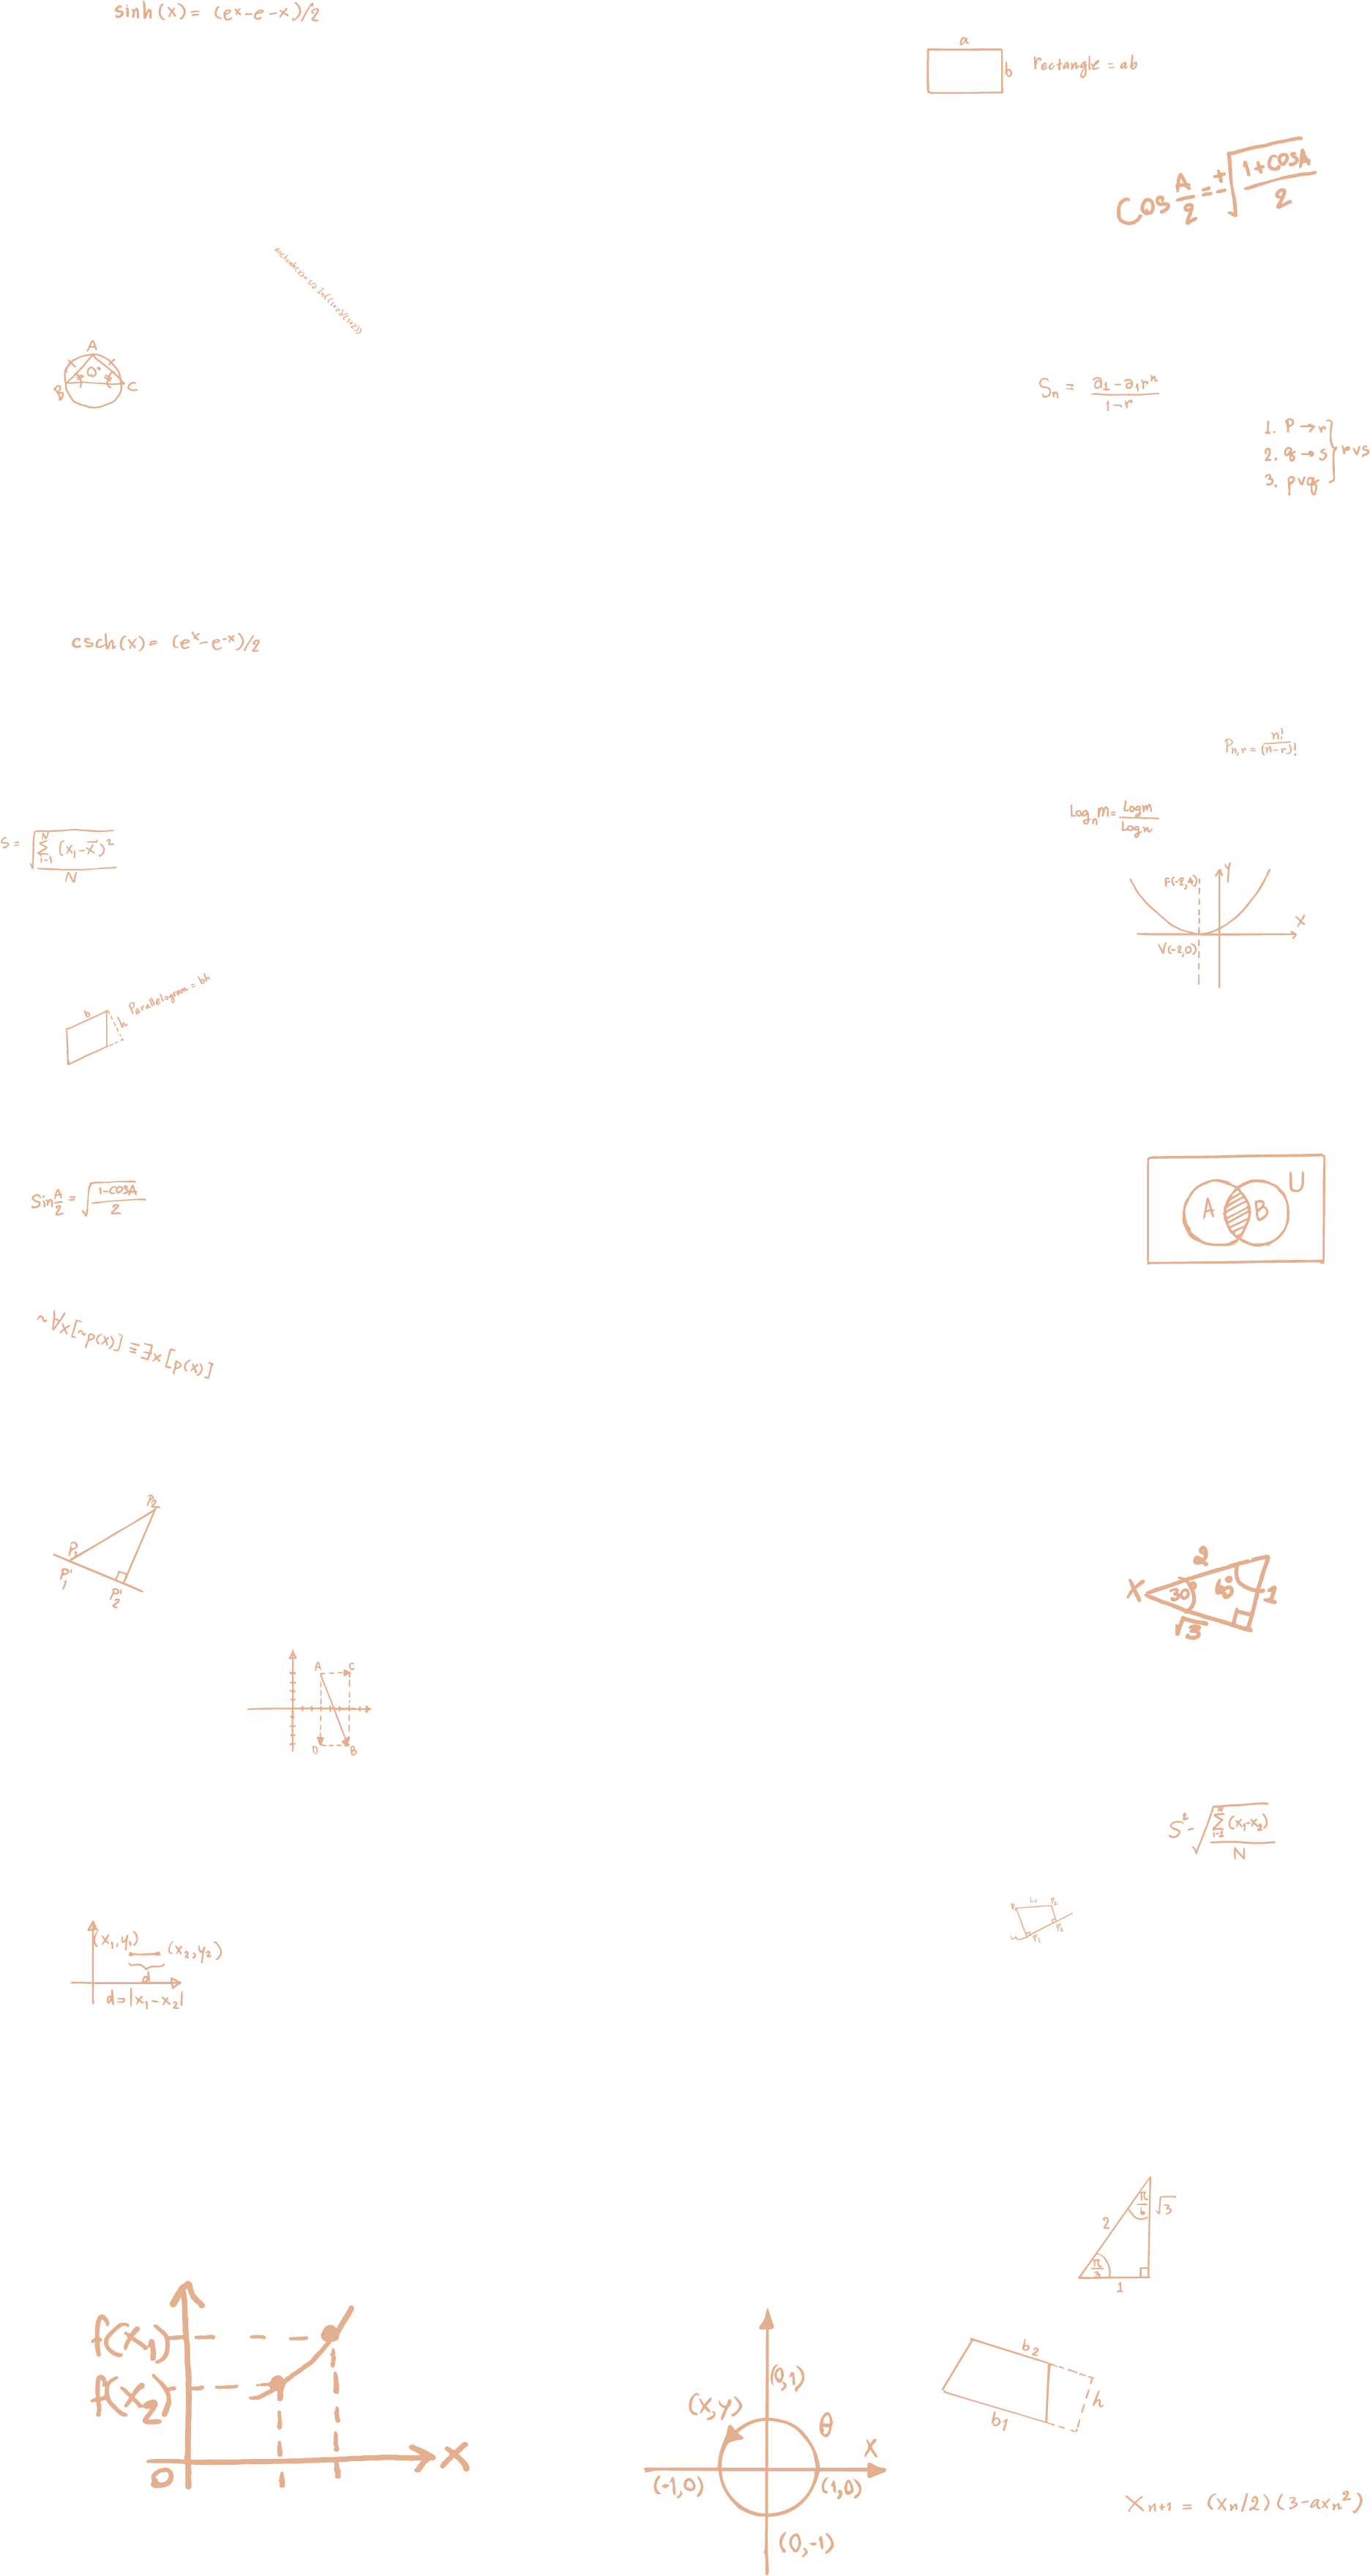 sinh(x) = (eˣ-e-x)/2
a
b
rectangle = ab
Cos A/2 = ±√((1+COSA)/2)
A
0°
B
C
Sₙ = (a₁-a₁rⁿ)/(1-r)
1. P→r
2. q→s
3. pvq
rvs
csch(x) = (eˣ-e⁻ˣ)/2
Pₙ,ᵣ = n!/(n-r)!
Logₙm = Logm/Logn
S = √(∑ᴺᵢ₋₁ (x₁-x̄)²)/N
F(-2,4)
y
x
V(-2,0)
b
h
Parallelogram = bh
U
A
B
Sin A/2 = √((1-COSA)/2)
~∀x[~p(x)] ≡ ∃x[p(x)]
P₂
P₁
P'₁
P'₂
2
X
30°
60°
1
√3
A
C
D
B
S² - √(∑ᴺᵢ₋₁ (x₁-x₂))/N
L₁
P₂
(x₁,y₁)
(x₂,y₂)
d
d=|x₁-x₂|
π/6
√3
2
π/3
1
f(x₁)
f(x₂)
0
X
(0,1)
(x,y)
θ
X
(-1,0)
(1,0)
(0,-1)
b₂
h
b₁
Xₙ₊₁ = (Xₙ/2)(3-axₙ²)